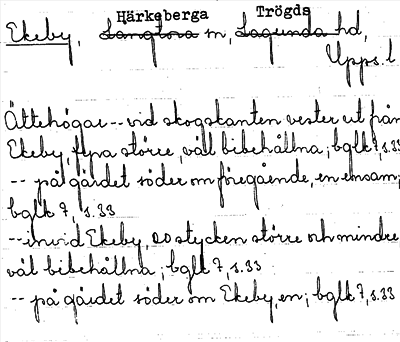 Härkeberga Trögds
Ekeby, Langtora m, Lagunda hd,
Upps. l
Ättehögar -- vid skogskanten vester ut från
Ekeby, flera större, väl bibehållna; bglk 7, s.33
-- på gärdet söder om föregående, en ensam;
bglk 7, s.33
-- invid Ekeby, 20 stycken större och mindre
väl bibehållna; bglk 7, s.33
-- på gärdet söder om Ekeby, en; bglk 7, s.33